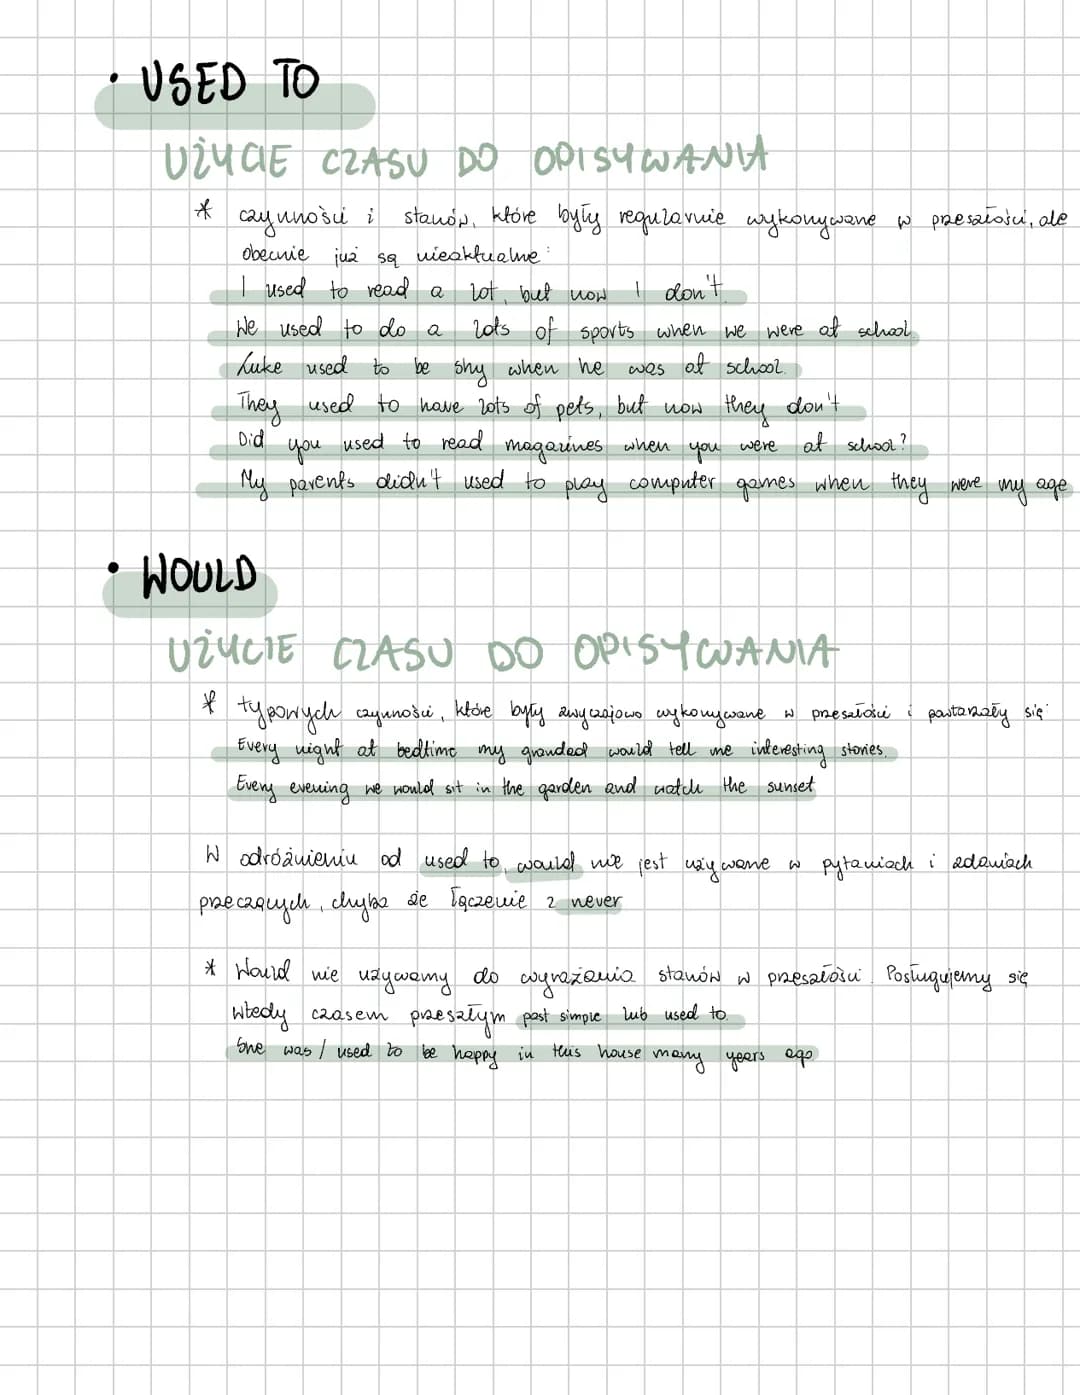 • USED TO
UŻYCIE CZASU DO OPISYWANIA
* czynności i stanów, które były regularnie wykonywane w przeszłości, ale
obecnie już są nieaktualne:
I used to read a lot, but now I don't.
We used to do a lots of sports when we were at school.
Luke used to be shy when he was at school.
They used to have lots of pets, but now they don't
Did you used to read magazines when you were at school?
My parents didn't used to play computer games when they were my age
• WOULD
UŻYCIE CZASU DO OPISYWANIA
* typowych czynności, które były zwyczajowo wykonywane w przeszłości i powtarzały się
Every night at bedtime my grandad would tell me interesting stories.
Every evening we would sit in the garden and watch the sunset
W odróżnieniu od used to, would nie jest używane w pytaniach i zdaniach
przeczących, chyba że łączenie z never
* Would nie używamy do wyrażania stanów w przeszłości. Posługujemy się
wtedy czasem przeszłym past simple lub used to.
She was / used to be happy in this house many years ago